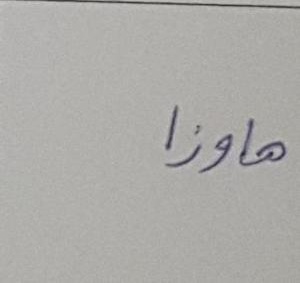 ماوزا